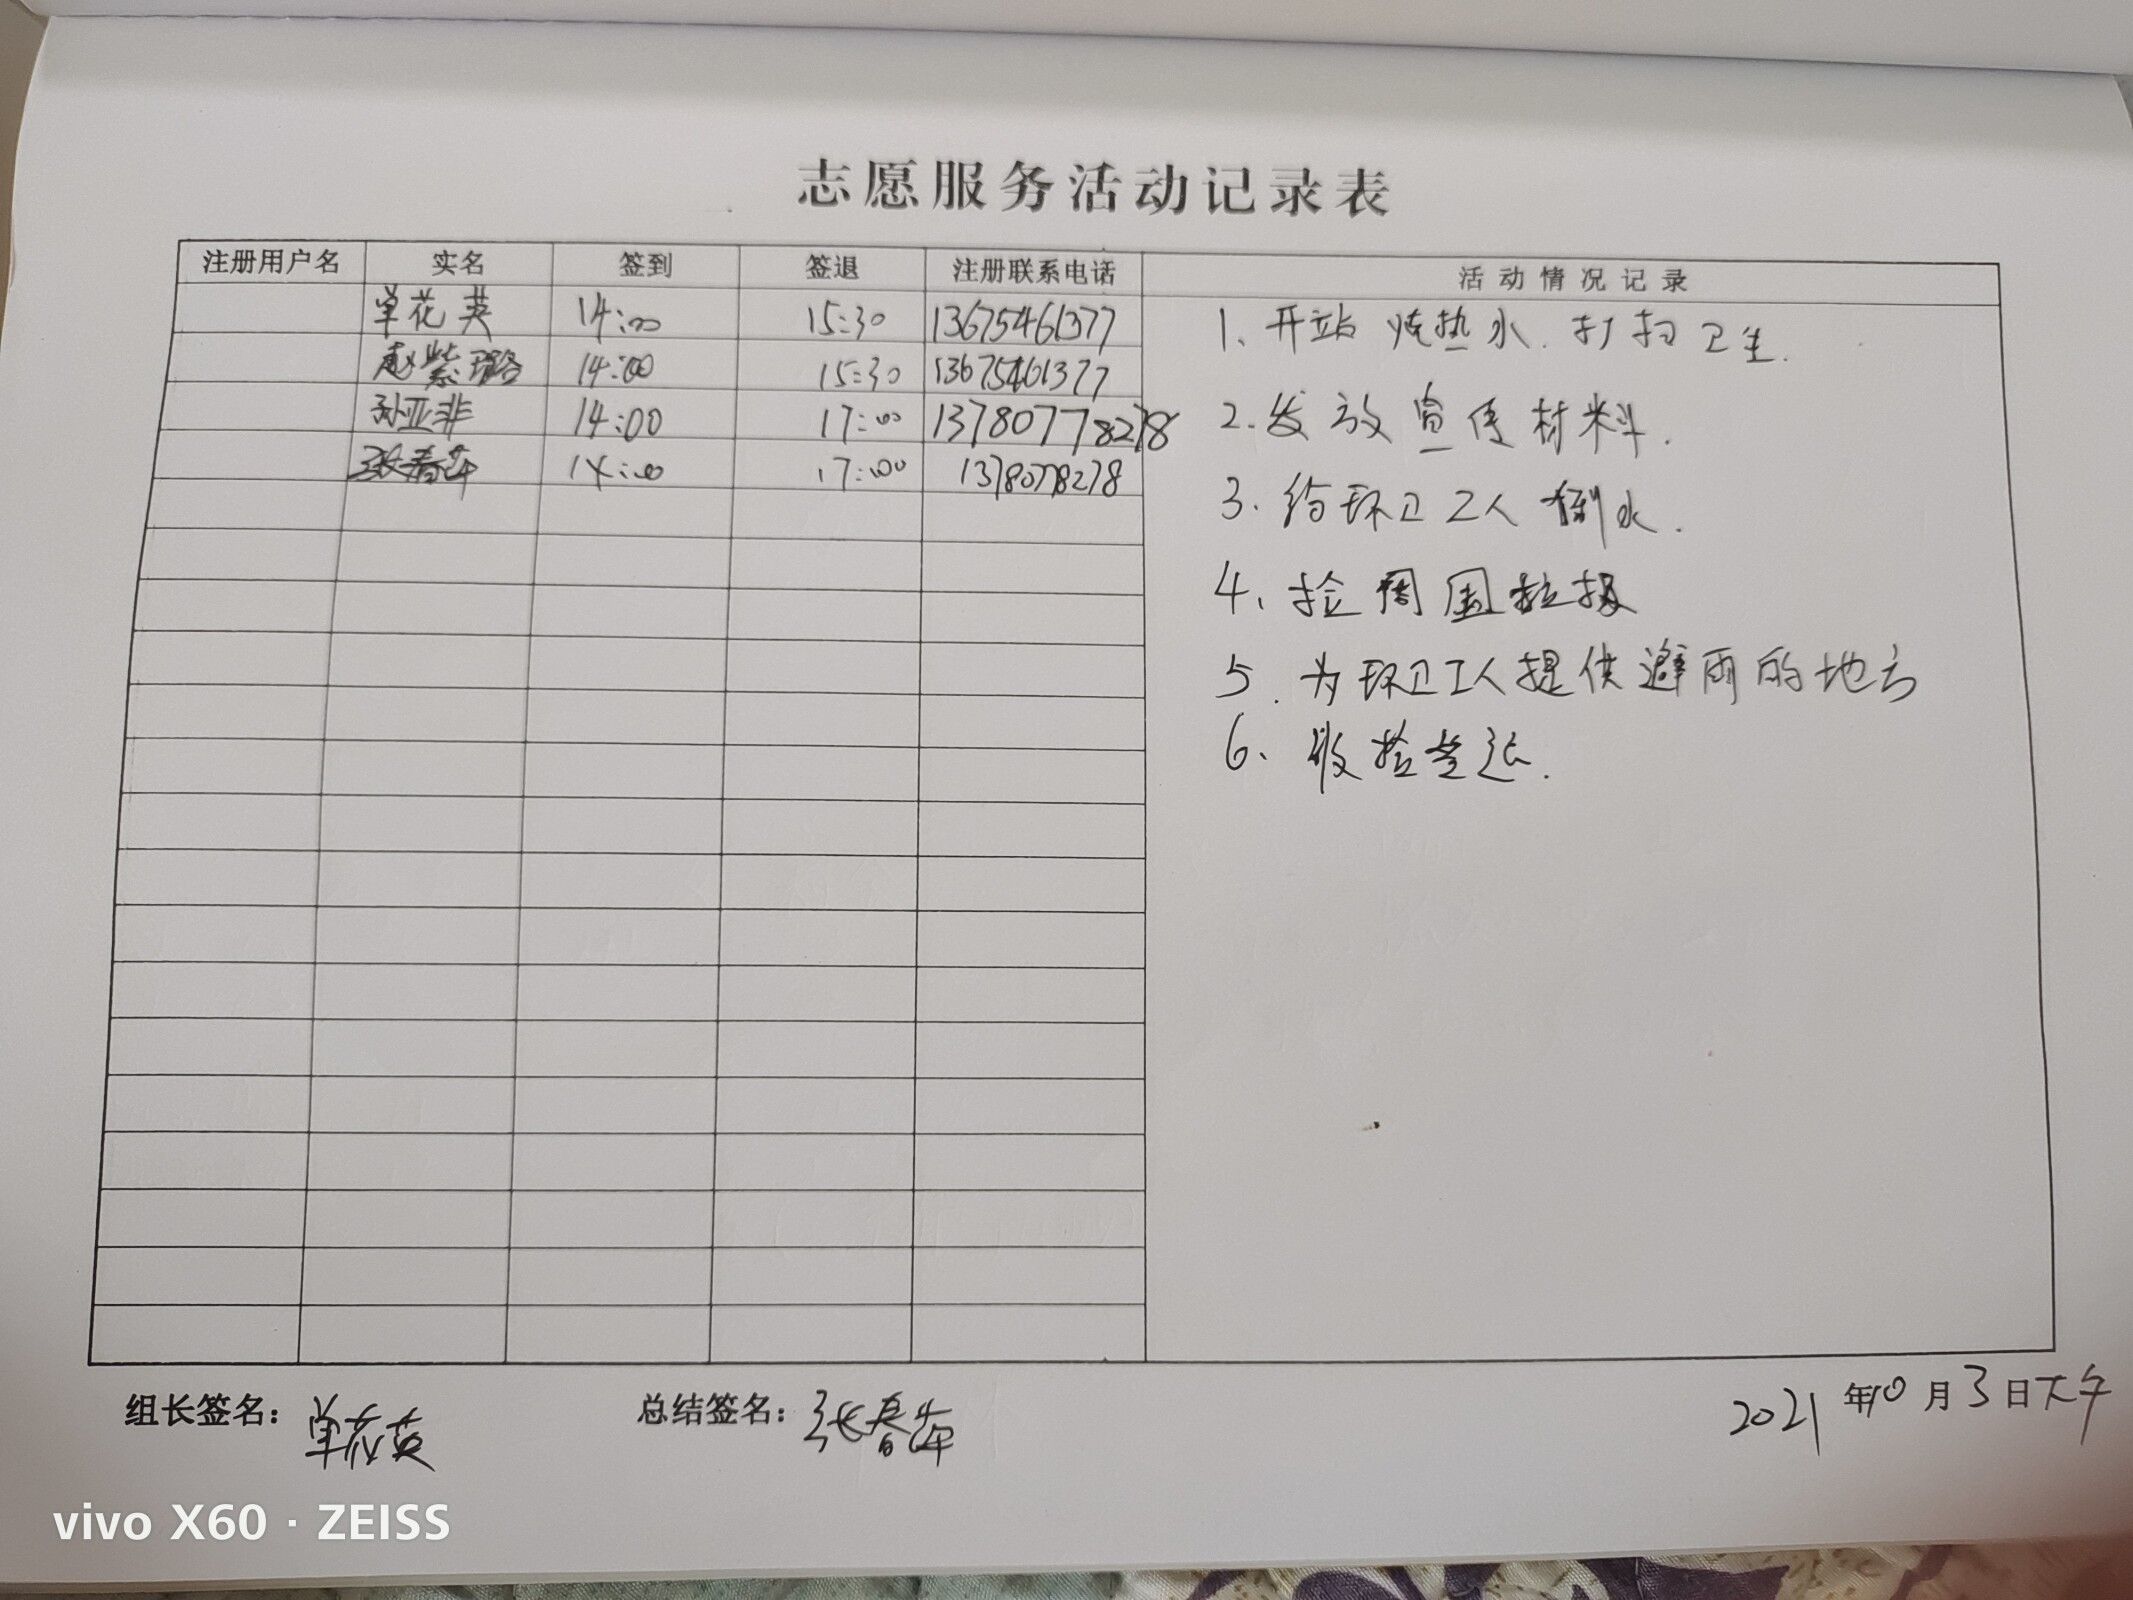 志愿服务活动记录表
注册用户名 实名 签到 签退 注册联系电话 活动情况记录
单花英 14:00 15:30 13675461377
赵紫璐 14:00 15:30 13675461377
孙亚非 14:00 17:00 13780778278
张春华 14:00 17:00 1378078278
1、开站 烧热水.打扫卫生.
2.发放宣传材料.
3.给环卫工人倒水.
4、捡周围垃圾
5.为环卫工人提供避雨的地方
6、收捡
组长签名：单花英 总结签名：张春华 2021年10月3日下午
vivo X60 · ZEISS